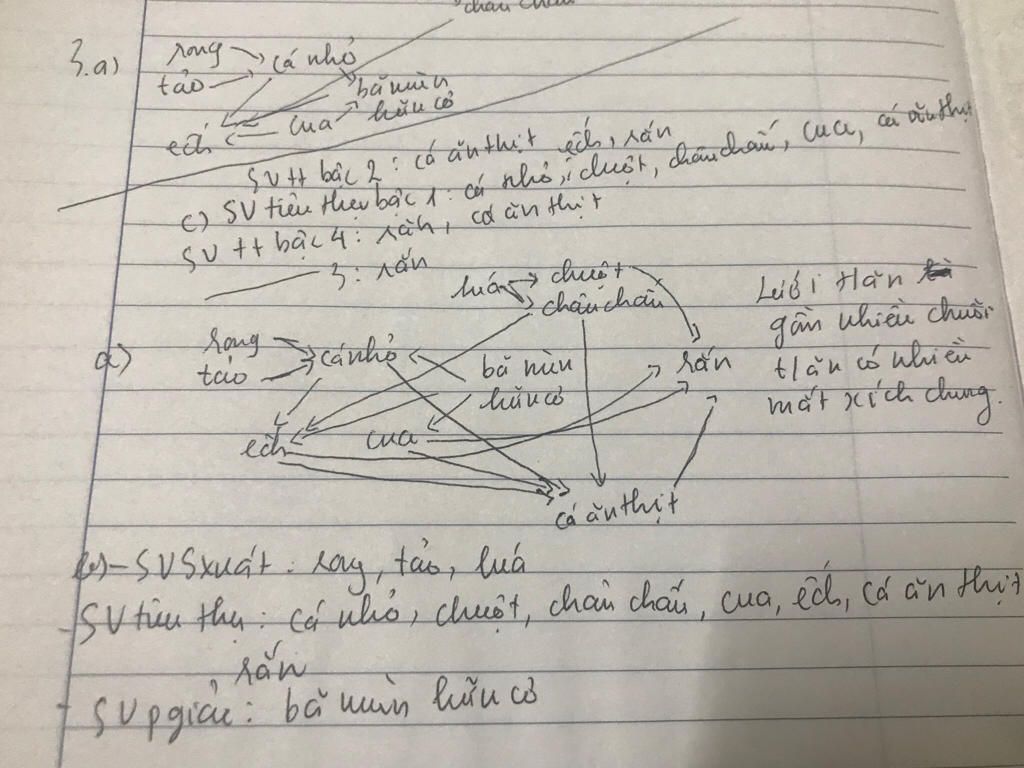 châu chấu
3.a) rong cá nhỏ
tảo bã mùn
hữu cơ
ếch cua
SV tt bậc 2: cá ăn thịt ếch, rắn
c) SV tiêu thụ bậc 1: cá nhỏ, chuột, châu chấu, cua, cá ăn thịt
SV tt bậc 4: rắn, cá ăn thịt
3: rắn
lúa chuột
châu chấu
a) rong cá nhỏ bã mùn rắn
tảo hữu cơ
ếch cua
cá ăn thịt
Lưới t/ăn
gồm nhiều chuỗi
t/ăn có nhiều
mắt xích chung.
b) - SVSxuất: rong, tảo, lúa
- SV tiêu thụ: cá nhỏ, chuột, châu chấu, cua, ếch, cá ăn thịt
rắn
- SV pgiải: bã mùn hữu cơ